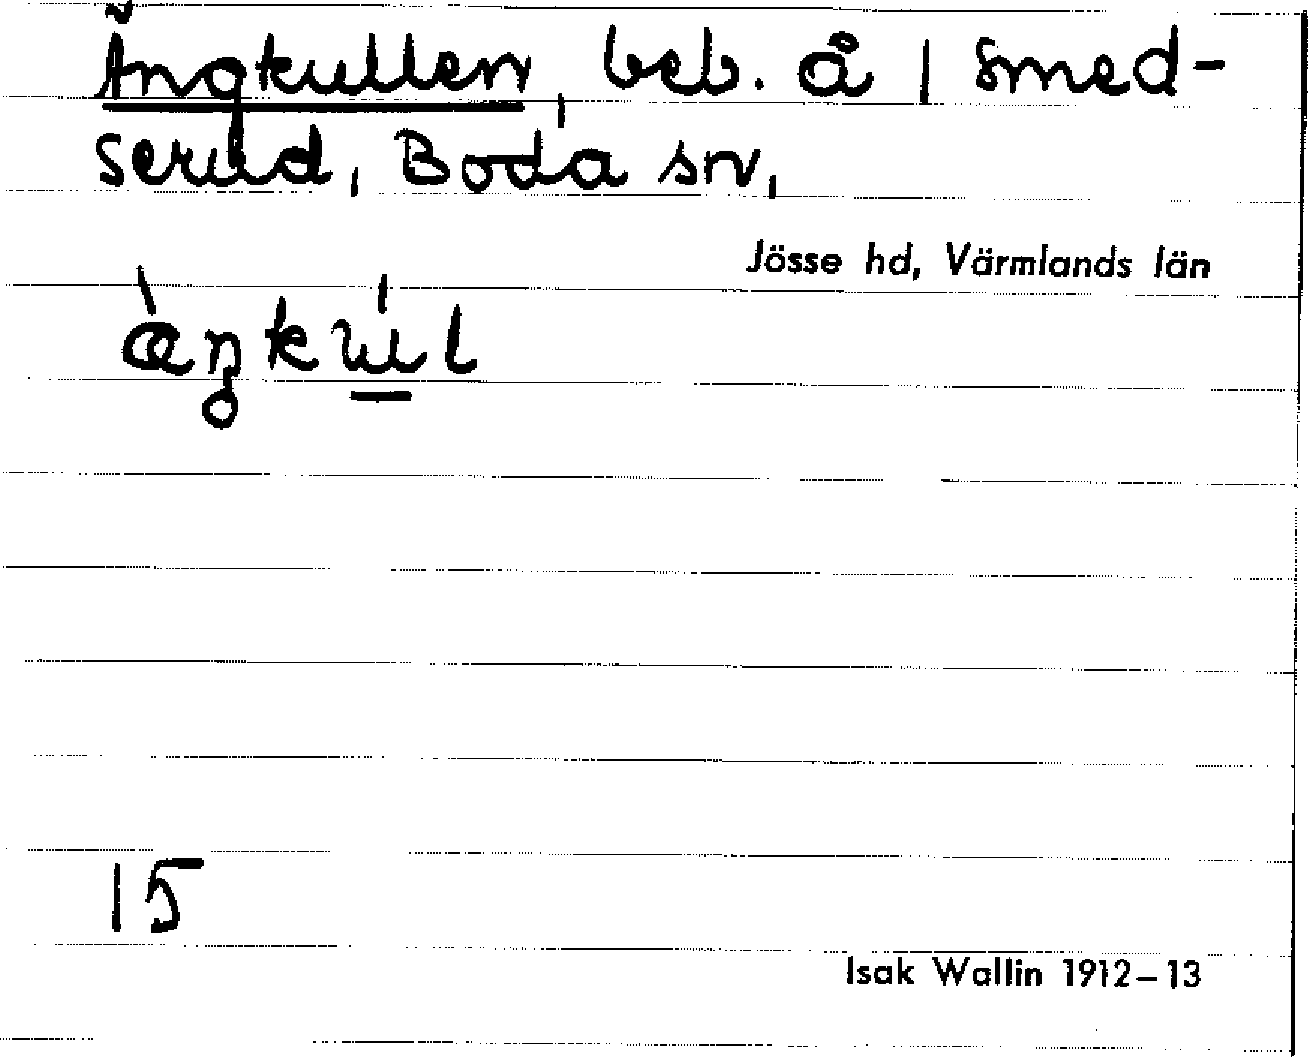 Ängkullen, beb. å 1 Smed-
serud, Boda sn,
Jösse hd, Värmlands län
15
Isak Wallin 1912–13